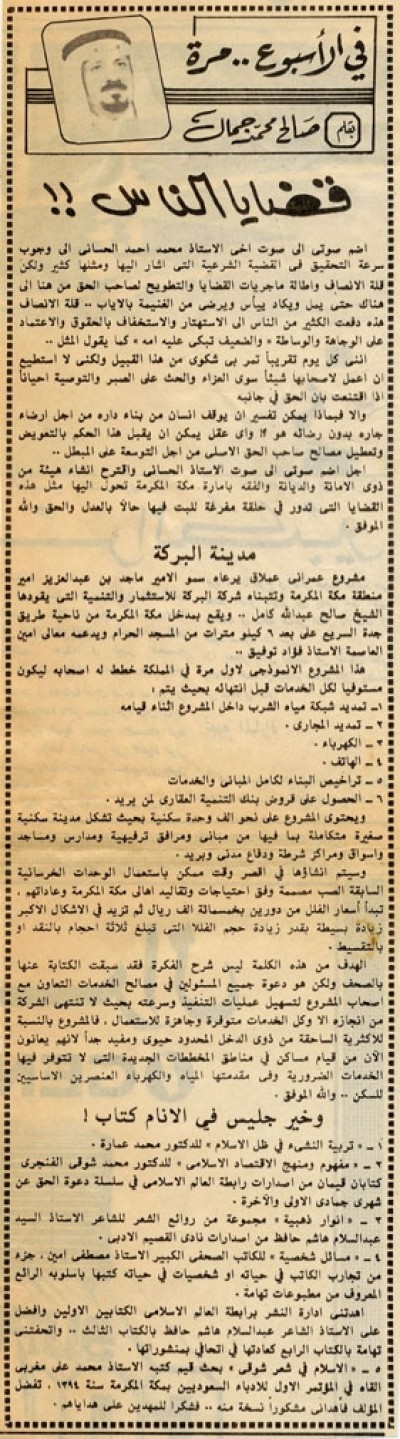 في الأسبوع .. مرة
بقلم صالح محمد جمال
قضايا الناس !!
اضم صوتى الى صوت اخى الاستاذ محمد احمد الحسانى الى وجوب
سرعة التحقيق فى القضية الشرعية التى اشار اليها ومثلها كثير ولكن
قلة الانصاف واطالة ماجريات القضايا والتطويح لصاحب الحق من هنا الى
هناك حتى يمل ويكاد ييأس ويرضى من الغنيمة بالاياب .. قلة الانصاف
هذه دفعت الكثير من الناس الى الاستهتار والاستخفاف بالحقوق والاعتماد
على الوجاهة والوساطة « والضعيف تبكى عليه امه » كما يقول المثل ..
اننى كل يوم تقريباً تمر بى شكوى من هذا القبيل ولكنى لا استطيع
ان اعمل لاصحابها شيئاً سوى العزاء والحث على الصبر والتوصية احياناً
اذا اقتنعت بان الحق فى جانبه
والا فبماذا يمكن تفسير ان يوقف انسان من بناء داره من اجل ارضاء
جاره بدون رضائه هو ؟! واى عقل يمكن ان يقبل هذا الحكم بالتعويض
وتعطيل مصالح صاحب الحق الاصلى من اجل التوسعة على المبطل ..
اجل اضم صوتى الى صوت الاستاذ الحسانى واقترح انشاء هيئة من
ذوى الامانة والديانة والفقه بامارة مكة المكرمة تحول اليها مثل هذه
القضايا التى تدور فى حلقة مفرغة للبت فيها حالاً بالعدل والحق والله
الموفق .
مدينة البركة
مشروع عمرانى عملاق يرعاه سمو الامير ماجد بن عبدالعزيز امير
منطقة مكة المكرمة وتتبناه شركة البركة للاستثمار والتنمية التى يقودها
الشيخ صالح عبدالله كامل .. ويقع بمدخل مكة المكرمة من ناحية طريق
جدة السريع على بعد ٦ كيلو مترات من المسجد الحرام ويدعمه معالى امين
العاصمة الاستاذ فؤاد توفيق ..
هذا المشروع الانموذجى لاول مرة في المملكة خطط له اصحابه ليكون
مستوفيا لكل الخدمات قبل انتهائه بحيث يتم :
١ـ تمديد شبكة مياه الشرب داخل المشروع اثناء قيامه
٢ ـ تمديد المجارى .
٣ ـ الكهرباء .
٤ ـ الهاتف .
٥ ـ تراخيص البناء لكامل المبانى والخدمات
٦ ـ الحصول على قروض بنك التنمية العقارى لمن يريد .
ويحتوى المشروع على نحو الف وحدة سكنية بحيث تشكل مدينة سكنية
صغيرة متكاملة بما فيها من مبانى ومرافق ترفيهية ومدارس ومساجد
واسواق ومراكز شرطة ودفاع مدنى وبريد .
وسيتم انشاؤها فى اقصر وقت ممكن باستعمال الوحدات الخرسانية
السابقة الصب مصممة وفق احتياجات وتقاليد اهالى مكة المكرمة وعاداتهم .
تبدأ أسعار الفلل من دورين بخمسمائة الف ريال ثم تزيد فى الاشكال الاكبر
زيادة بسيطة بقدر زيادة حجم الفللا التى تبلغ ثلاثة احجام بالنقد او
بالتقسيط .
الهدف من هذه الكلمة ليس شرح الفكرة فقد سبقت الكتابة عنها
بالصحف ولكن هو دعوة جميع المسئولين فى مصالح الخدمات التعاون مع
اصحاب المشروع لتسهيل عمليات التنفيذ وسرعته بحيث لا تنتهى الشركة
من انجازه الا وكل الخدمات متوفرة وجاهزة للاستعمال ، فالمشروع بالنسبة
للاكثرية الساحقة من ذوى الدخل المحدود حيوى ومفيد جداً لانهم يعانون
الآن من قيام مساكن فى مناطق المخططات الجديدة التى لا تتوفر فيها
الخدمات الضرورية وفى مقدمتها المياه والكهرباء العنصرين الاساسيين
للسكن .. والله الموفق .
وخير جليس في الانام كتاب !
١ ـ « تربية النشىء في ظل الاسلام » للدكتور محمد عمارة .
٢ ـ « مفهوم ومنهج الاقتصاد الاسلامى » للدكتور محمد شوقى الفنجرى
كتابان قيمان من اصدارات رابطة العالم الاسلامى في سلسلة دعوة الحق عن
شهرى جمادى الاولى والآخرة .
٣ ـ « انوار ذهبية » مجموعة من روائع الشعر للشاعر الاستاذ السيد
عبدالسلام هاشم حافظ من اصدارات نادى القصيم الادبى .
٤ ـ « مسائل شخصية » للكاتب الصحفى الكبير الاستاذ مصطفى امين ، جزء
من تجارب الكاتب في حياته او شخصيات في حياته كتبها باسلوبه الرائع
المعروف من مطبوعات تهامة .
اهدتنى ادارة النشر برابطة العالم الاسلامى الكتابين الاولين وافضل
على الاستاذ الشاعر عبدالسلام هاشم حافظ بالكتاب الثالث .. واتحفتنى
تهامة بالكتاب الرابع كعادتها فى اتحافى بمنشوراتها .
٥ ـ « الاسلام في شعر شوقى » بحث قيم كتبه الاستاذ محمد على مغربى
القاه فى المؤتمر الاول للادباء السعوديين بمكة المكرمة سنة ١٣٩٤ ، تفضل
المؤلف فأهدانى مشكوراً نسخة منه .. فشكرا للمهدين على هداياهم .